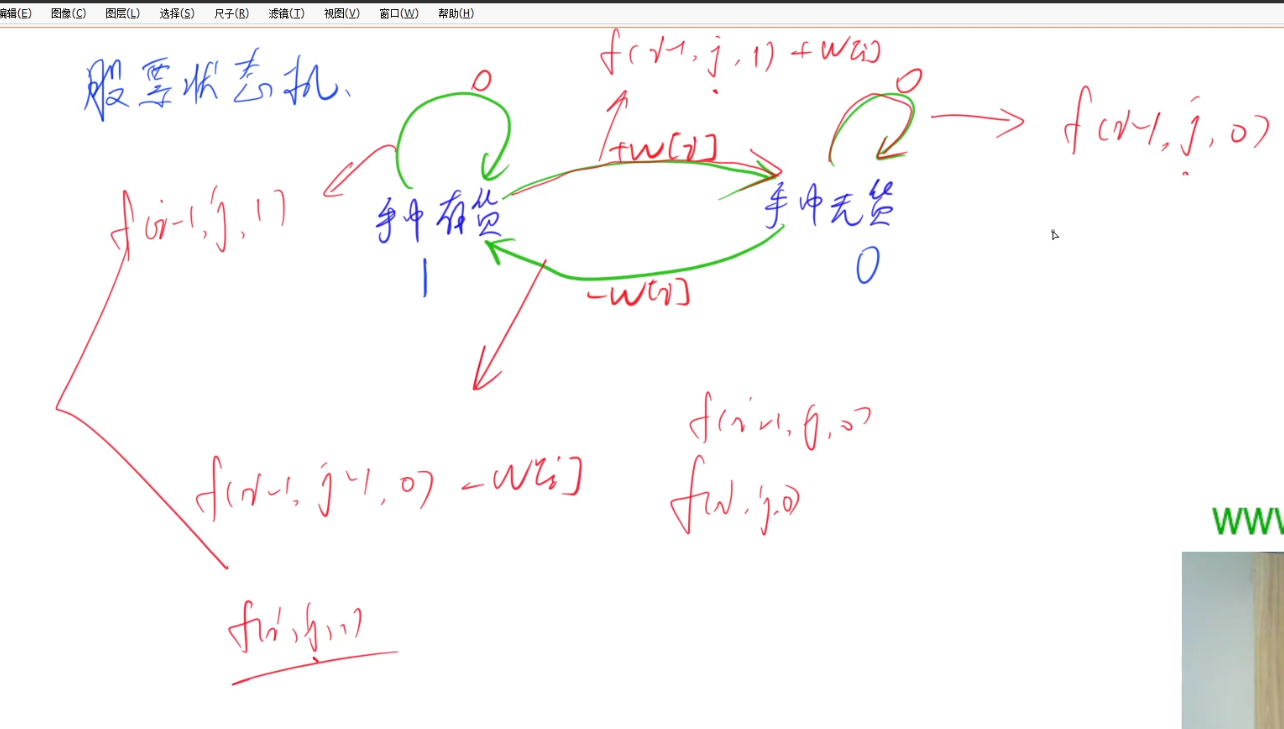 编辑(E) 图像(C) 图层(L) 选择(S) 尺子(R) 滤镜(T) 视图(V) 窗口(W) 帮助(H)
股票状态机、
f(i-1, j, 1) + w[i]
0
0
+w[i]
f(i-1, j, 0)
f(i-1, j, 1)
手中有货
手中无货
1
0
-w[i]
f(i-1, j, 0)
f(i-1, j-1, 0) - w[i]
f(i, j, 0)
f(i, j, 1)
WWW